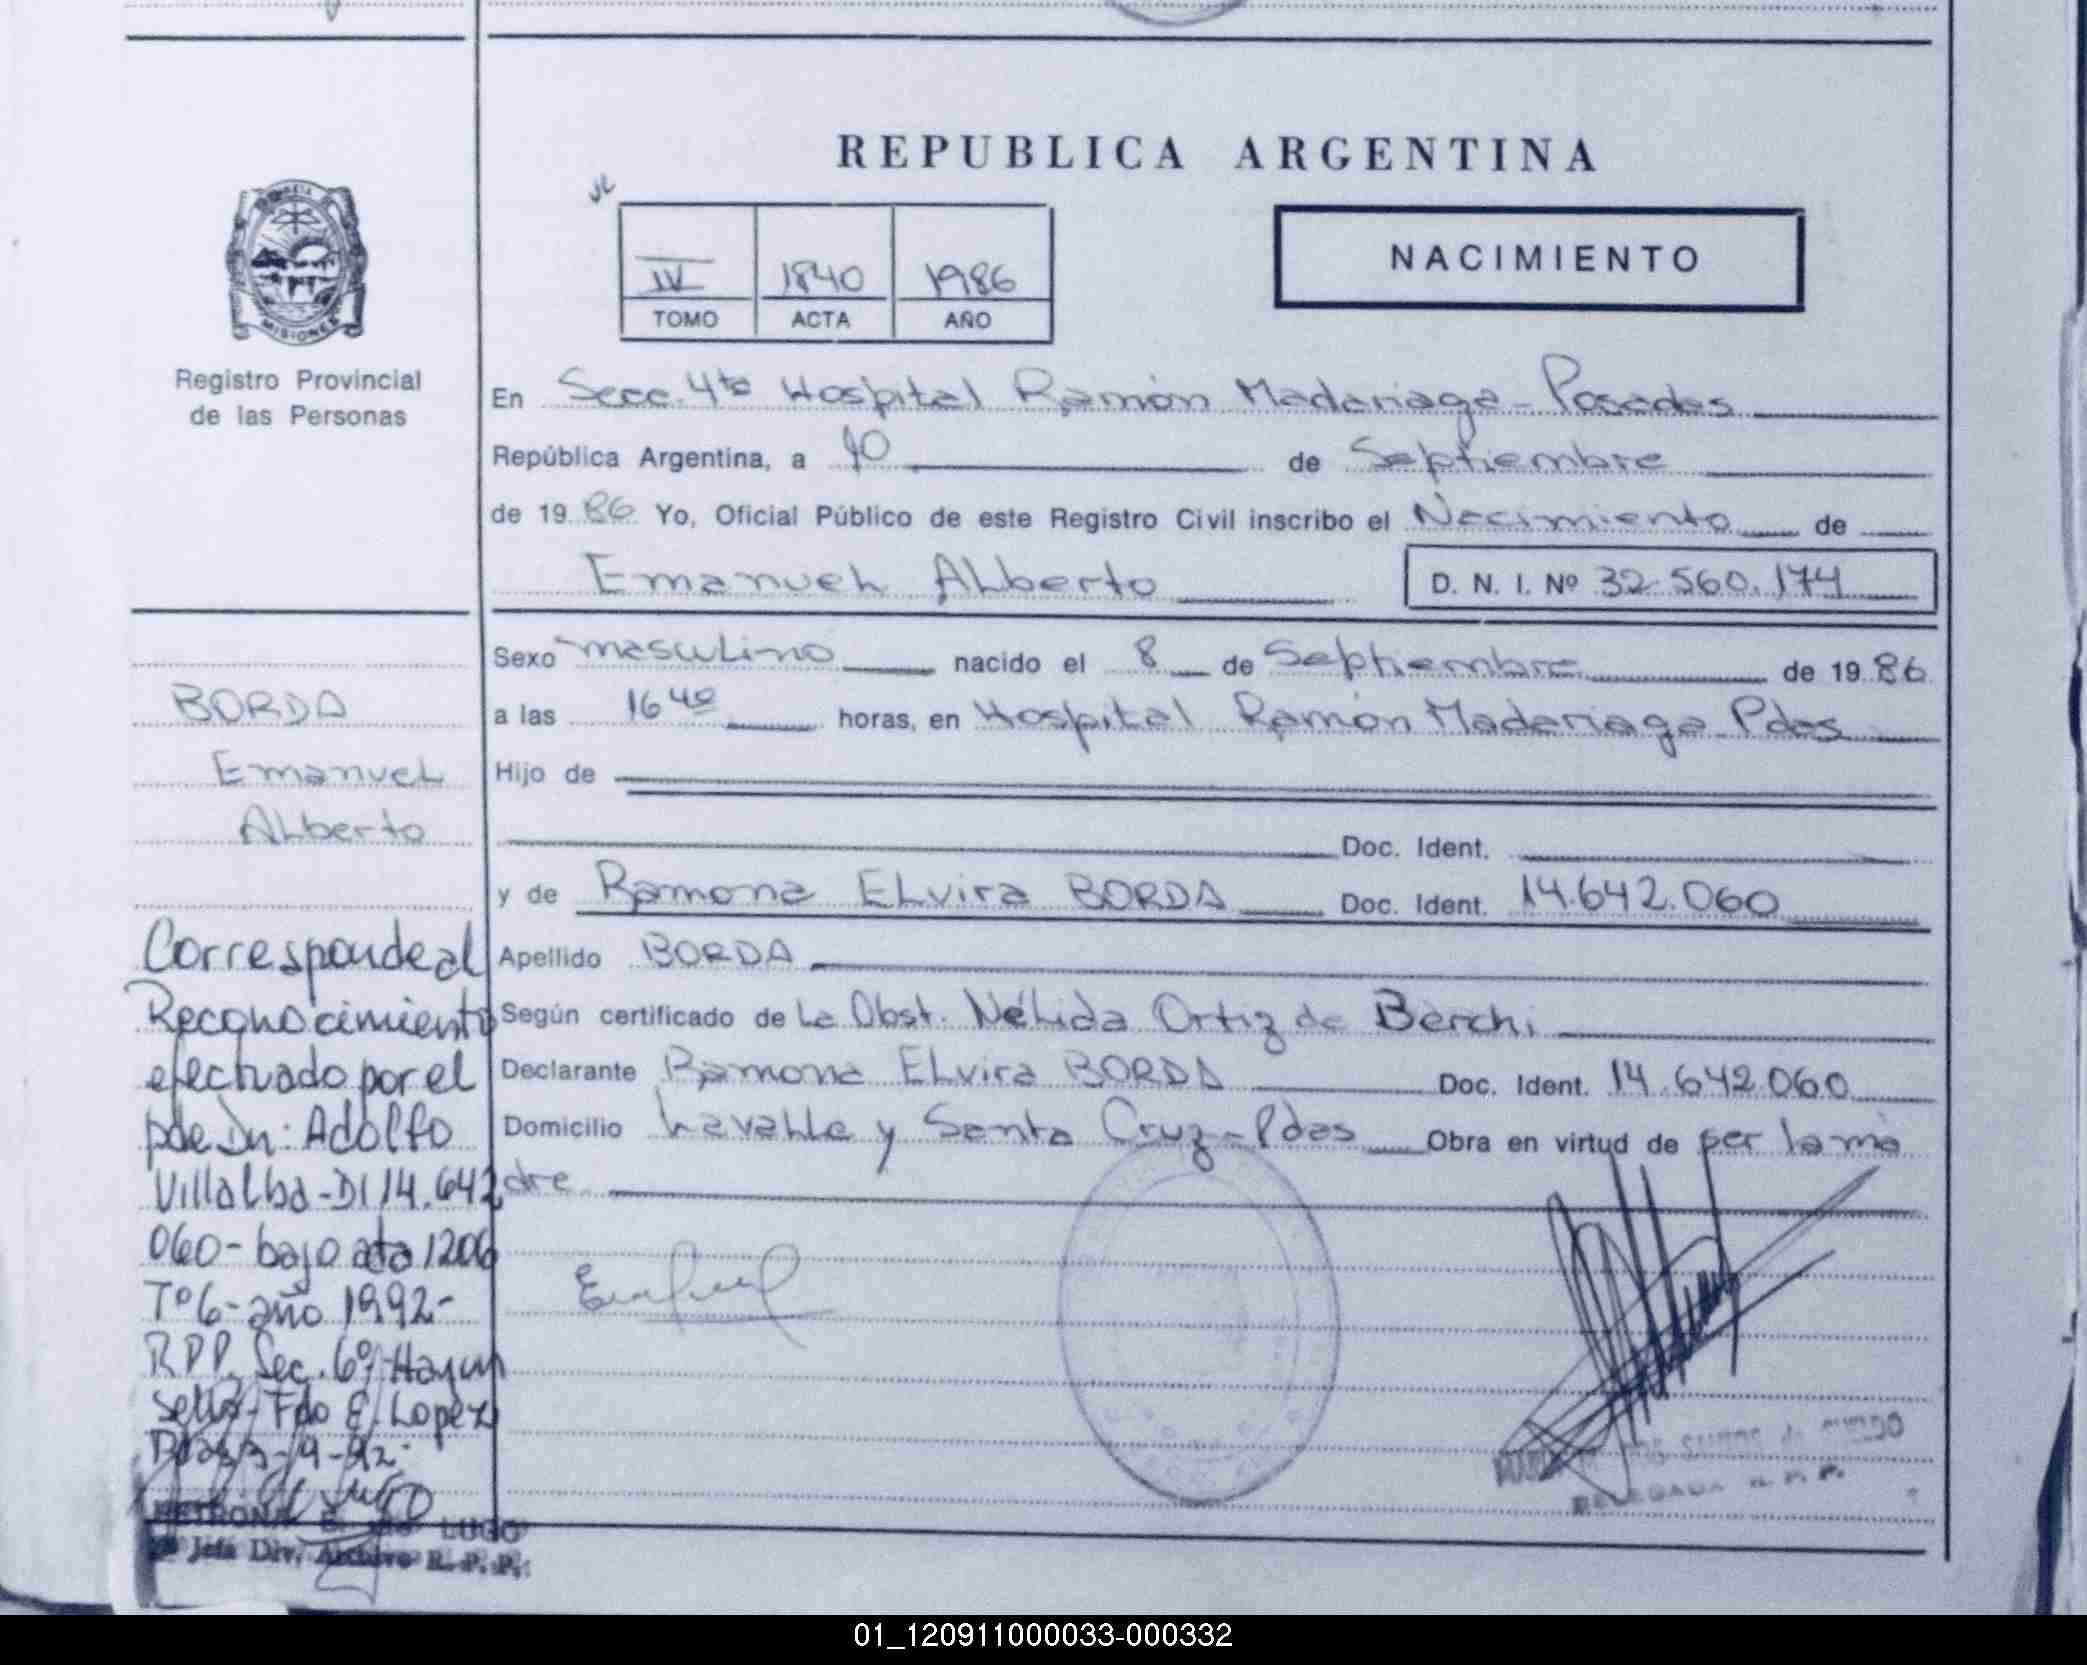 REPUBLICA ARGENTINA
MISIONES
Registro Provincial
de las Personas
IV 1840 1986
TOMO ACTA AÑO
NACIMIENTO
En Secc. 4ta Hospital Ramón Madariaga - Posadas
República Argentina, a 10 de Septiembre
de 1986 Yo, Oficial Público de este Registro Civil inscribo el Nacimiento de
Emanuel Alberto D. N. I. Nº 32.560.174
Sexo masculino nacido el 8 de Septiembre de 1986
a las 16 40 horas, en Hospital Ramón Madariaga - Pdas
Hijo de
Doc. Ident.
y de Ramona Elvira BORDA Doc. Ident. 14.642.060
Apellido BORDA
Según certificado de La Obst. Nélida Ortiz de Berchi
Declarante Ramona Elvira BORDA Doc. Ident. 14.642.060
Domicilio Lavalle y Santa Cruz - Pdas Obra en virtud de ser la ma
dre
BORDA
Emanuel
Alberto
Corresponde al
Reconocimiento
efectuado por el
pde Dn: Adolfo
Villalba - DI 14.642
060 - bajo ata 1206
Tº 6 - año 1992 -
RPP. Sec. 6º Hay un
sello - Fdo E. Lopez
Pdas 3-9-92
LUGO
Jefa Div. Archivo R. P. P.
SANTOS de
DELEGADA R. P. P.
01_120911000033-000332